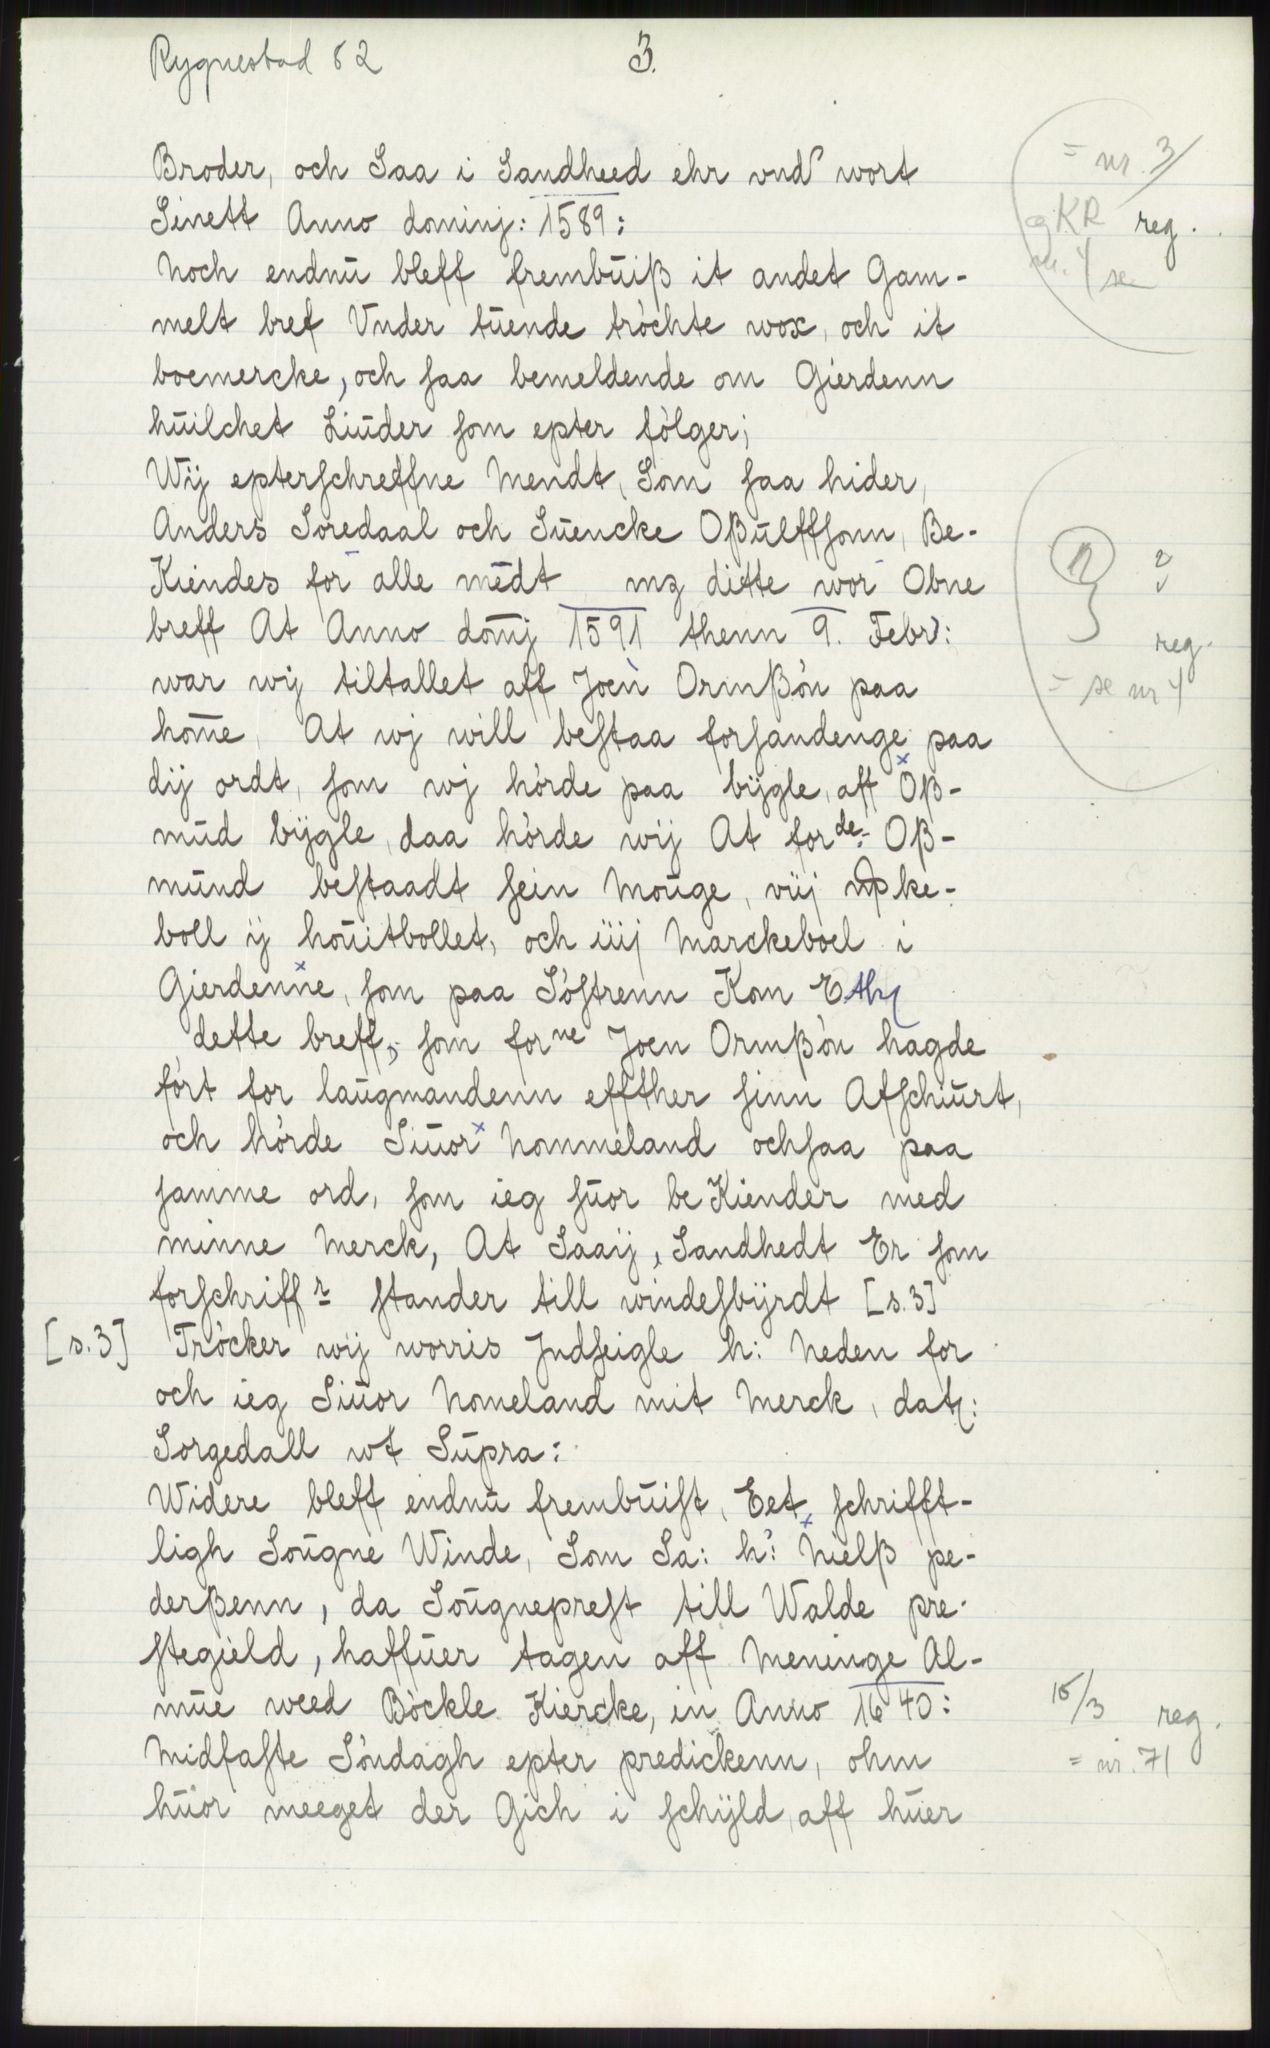 Rygnestad 62
3.
Broder, och Saa i Sandheed ehr vnd wort
Sinett Anno dominj: 1589:
Noch endnu bleff frembuiß it andet Gam-
melt bref Vnder tuende tröchte wox, och it
boemercke, och saa bemeldende om Gierdenn
huilchet Liuder som epter fölger;
Wij epterschreffne Mendt, Som saa hider,
Anders Soredaal och Suencke Oßulffsonn, Be-
Kiendes for alle mēdt mz ditte wor Obne
breff At Anno dōmj 1591 thenn 9. Febr:
war wij tiltallet aff Joen Ormßön paa
hōme, At wj will bestaa forsandenge paa
dij ordt, som wj hörde paa bijgle, aff Oß-
mūd bijgle, daa hörde wij At forde: Oß-
mund bestaadt sein Mouge, vij mp ke-
boll ij houitbollet, och iiij Marckeboel i
Gierdenne, som paa Söstrenn Kom Eth
dette breff, som forne Joen Ormßön hagde
fört for laugmandenn effther sinn Afschiurt,
och hörde Siuor Nommeland ochsaa paa
samme ord, som ieg suor be Kiender med
minne Merck, At Saaij, Sandhedt Er som
forschriffr stander till windesbijrdt [s.3]
[s.3] Tröcker wij worris Jndseigle h: Neden for
och ieg Siuor Nomeland mit Merck, dat:
Sorgedall wt Supra:
Widere bleff endnu frembuist, Eet schrifft-
ligh Sougne Winde, Som Sa: h: Nielß pe-
derßenn, da Sougneprest till Walde pre-
stegield, haffuer tagen aff Meninge Al-
mue weed Böckle Kiercke, in Anno 1640:
Midfaste Söndagh epter predickenn, ohm
huor meeget der Gich i schijld, aff huer
= nr. 3
KR reg.
nr. 4 se
n ?
reg.
= se nr 4
15/3 reg.
= nr. 71